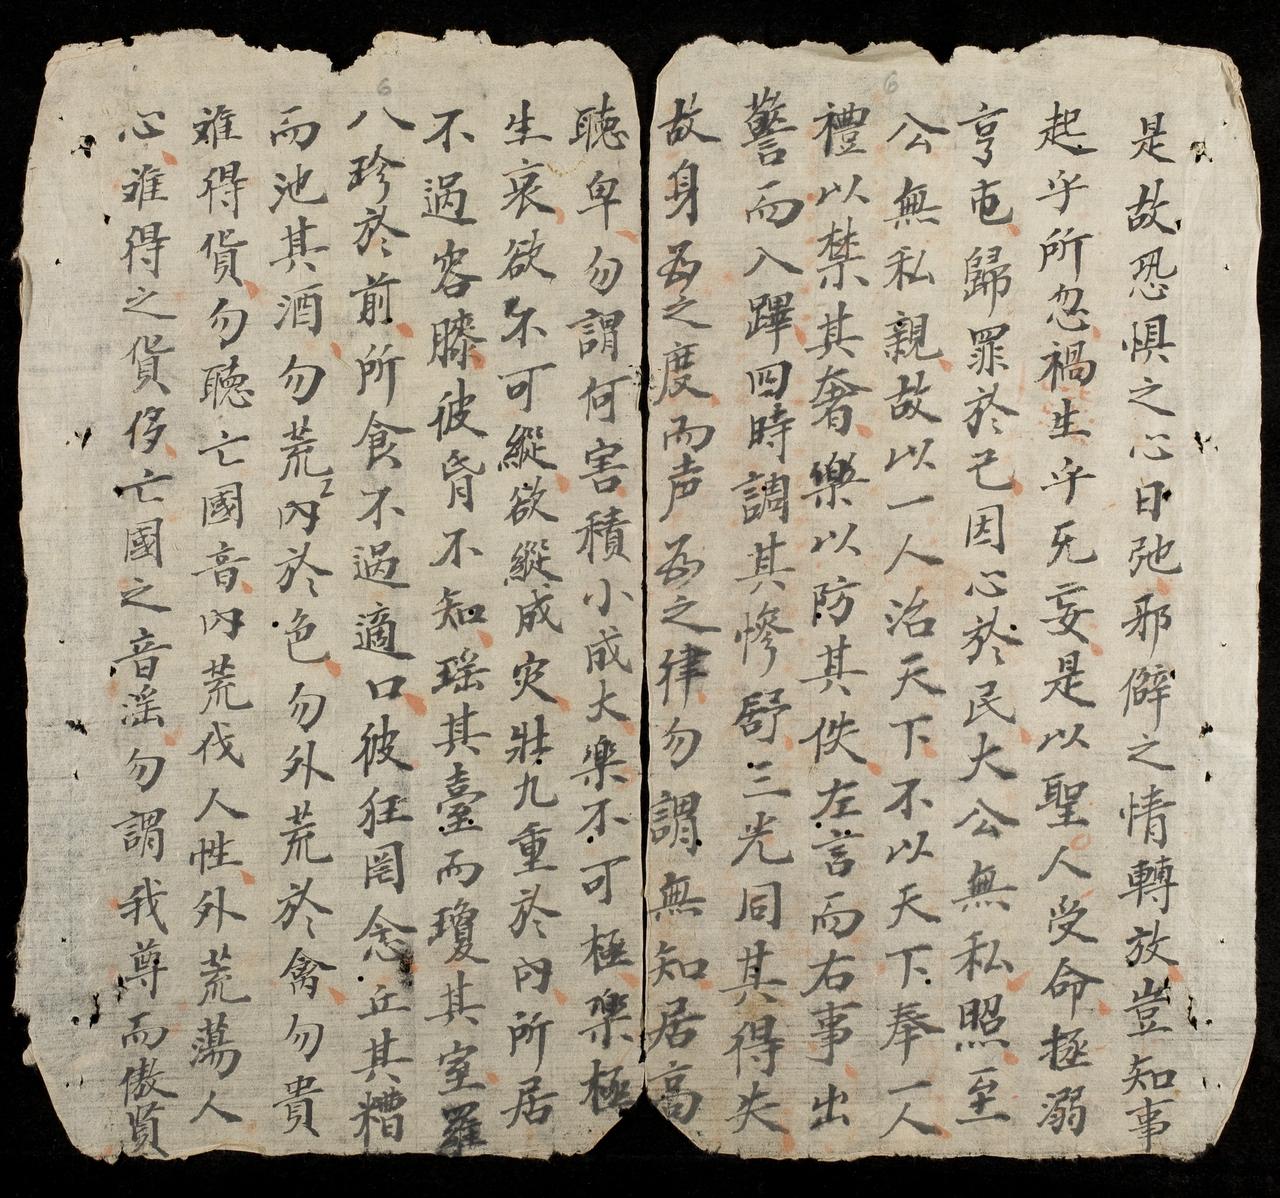 是故恐惧之心日弛邪僻之情轉放豈知事
起乎所忽禍生乎无妄是以聖人受命拯溺
亨屯歸罪於己因心於民大公無私照至
公無私親故以一人治天下不以天下奉一人
禮以禁其奢樂以防其佚左言而右事出
警而入蹕四時調其惨舒三光同其得失
故身為之度而声為之律勿謂無知居高
聽卑勿謂何害積小成大樂不可極樂極
生哀欲不可縱欲縱成灾壯九重於内所居
不過容膝彼昏不知瑶其臺而瓊其室羅
八珍於前所食不過適口彼狂罔念丘其糟
而池其酒勿荒内於色勿外荒於禽勿貴
难得貨勿聽亡國音内荒伐人性外荒蕩人
心难得之貨侈亡國之音滛勿謂我尊而傲賢
6
6